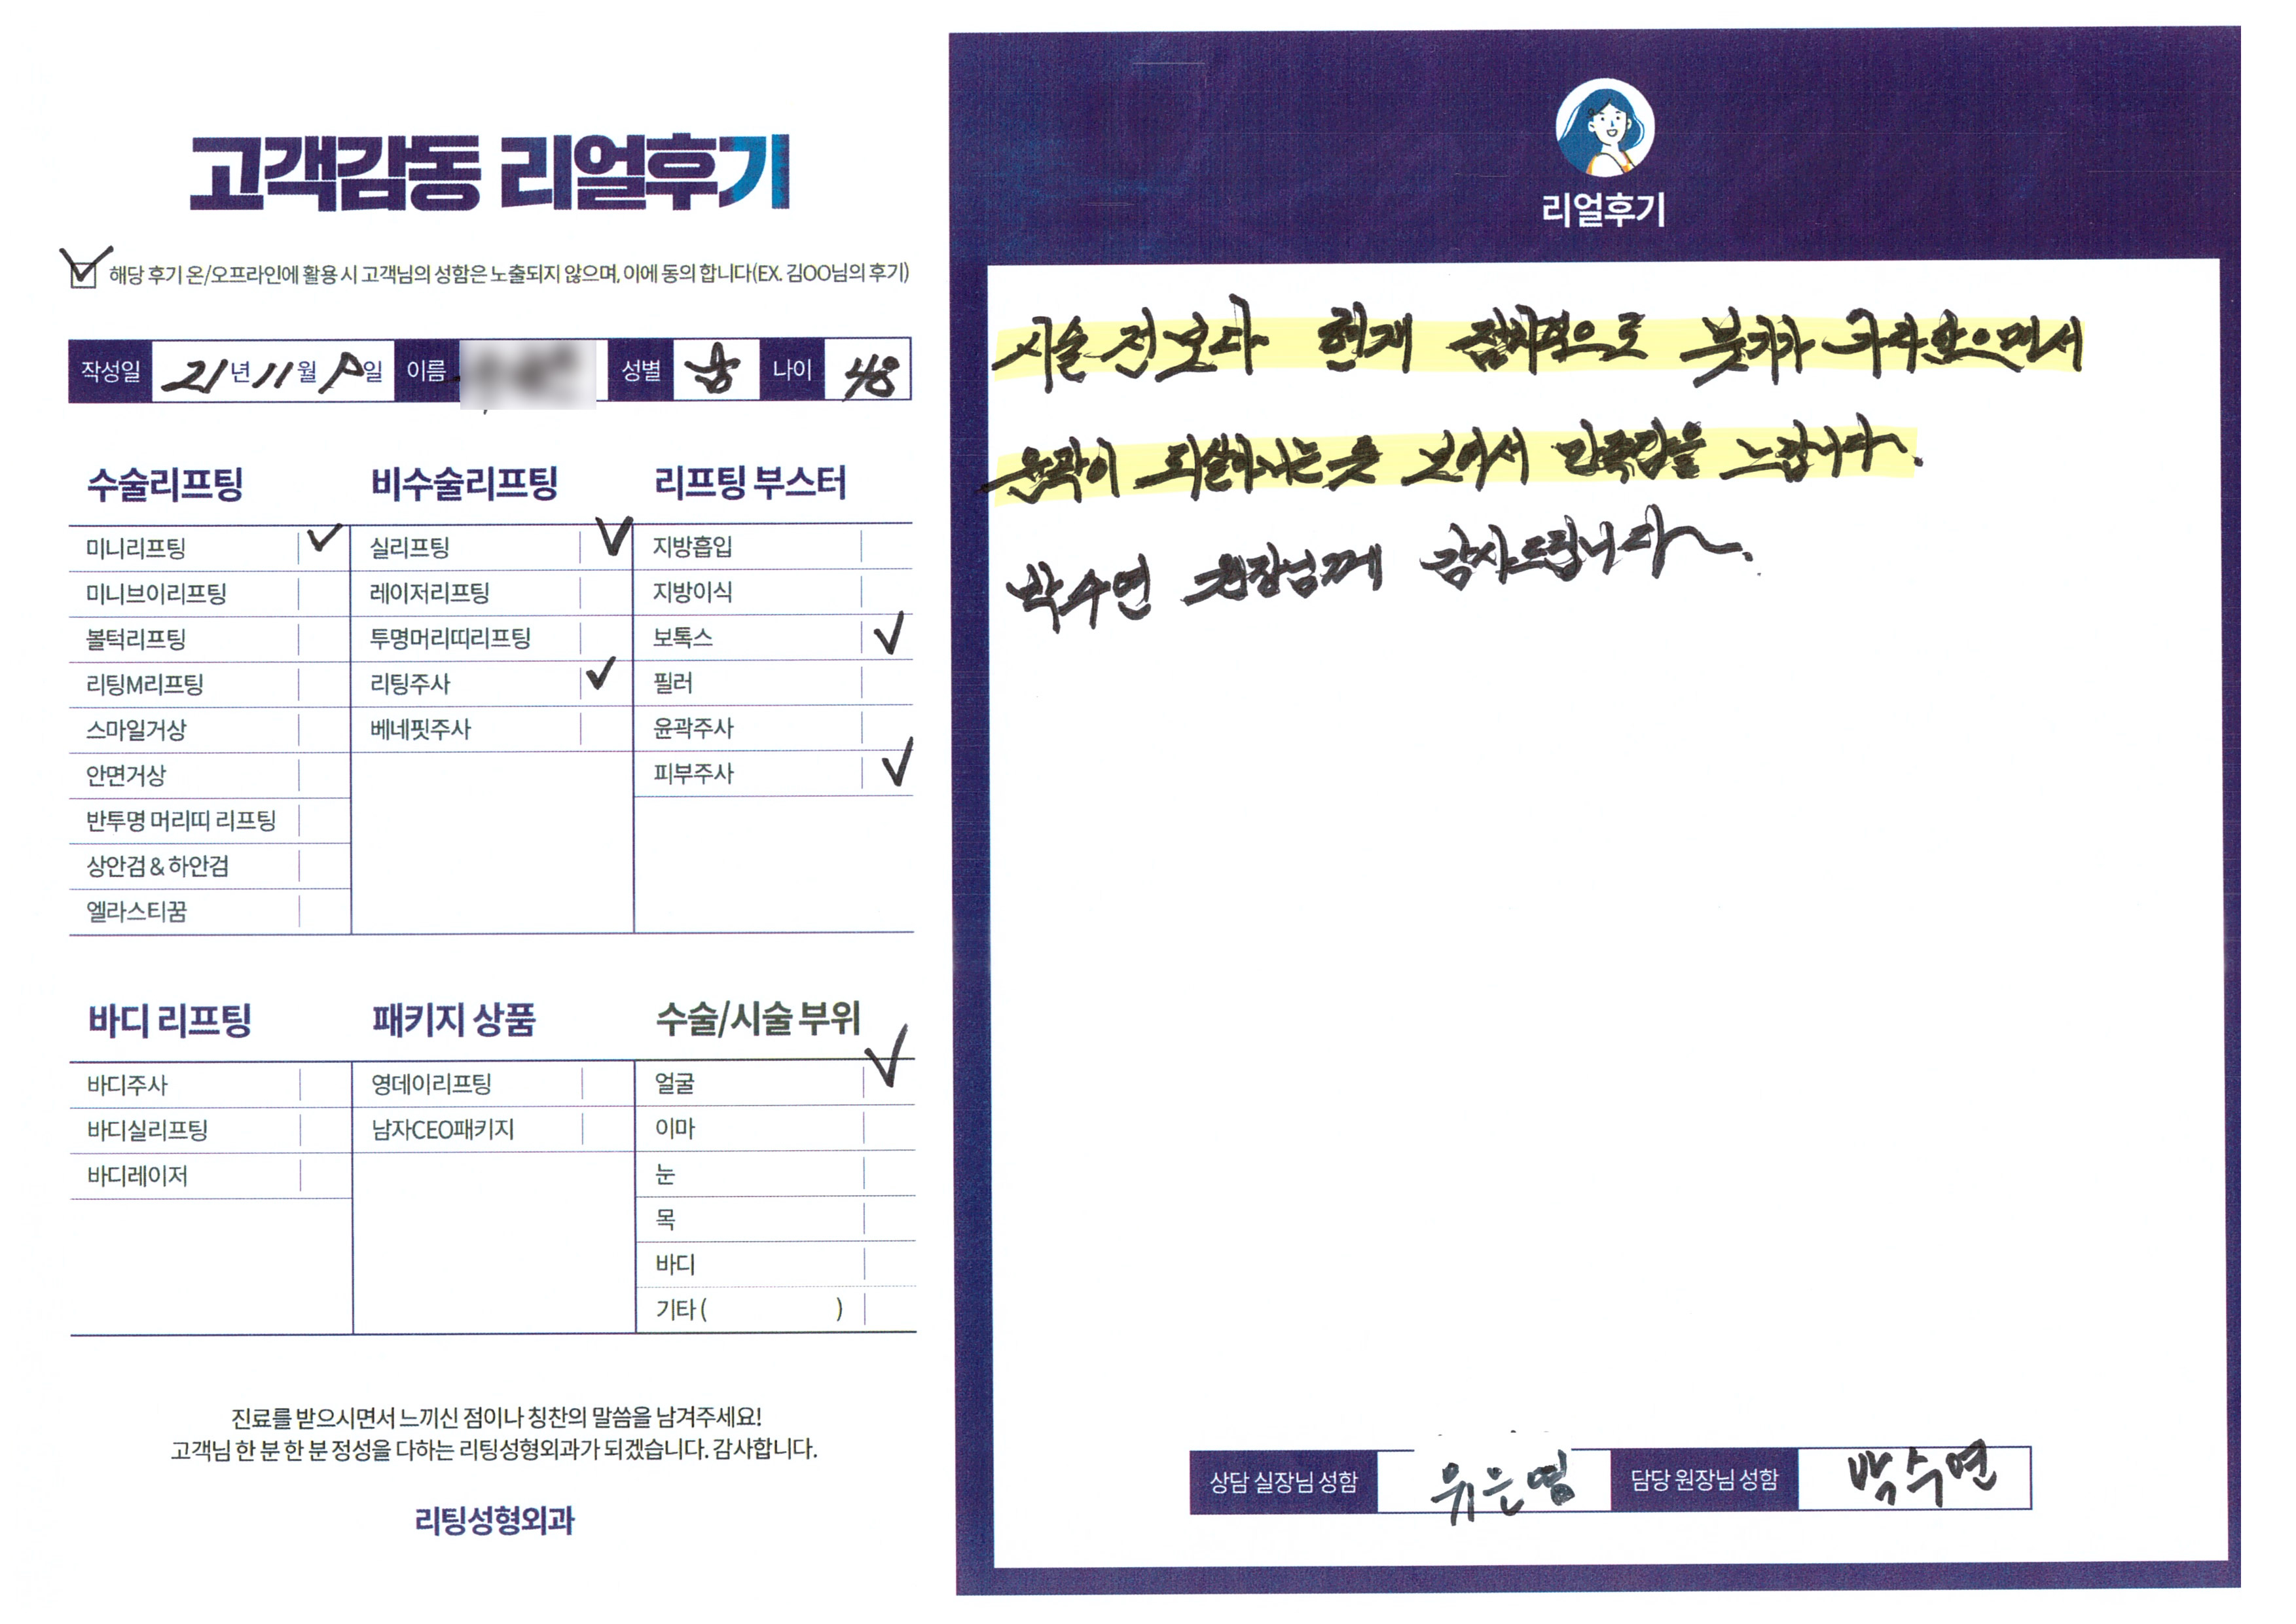 고객감동 리얼후기
해당 후기 온/오프라인에 활용 시 고객님의 성함은 노출되지 않으며, 이에 동의 합니다(EX. 김OO님의 후기)
작성일 21년 11월 일 이름 성별 남 나이 48
수술리프팅
미니리프팅
미니브이리프팅
볼턱리프팅
리팅M리프팅
스마일거상
안면거상
반투명 머리띠 리프팅
상안검 & 하안검
엘라스티꿈
비수술리프팅
실리프팅
레이저리프팅
투명머리띠리프팅
리팅주사
베네핏주사
리프팅 부스터
지방흡입
지방이식
보톡스
필러
윤곽주사
피부주사
바디 리프팅
바디주사
바디실리프팅
바디레이저
패키지 상품
영데이리프팅
남자CEO패키지
수술/시술 부위
얼굴
이마
눈
목
바디
기타 ( )
진료를 받으시면서 느끼신 점이나 칭찬의 말씀을 남겨주세요!
고객님 한 분 한 분 정성을 다하는 리팅성형외과가 되겠습니다. 감사합니다.
리팅성형외과
리얼후기
시술 전보다 현재 점차적으로 붓기가 가라앉으면서
윤곽이 되살아나는듯 보여서 만족감을 느낍니다.
박수연 원장님께 감사드립니다~.
상담 실장님 성함 위은영 담당 원장님 성함 박수연